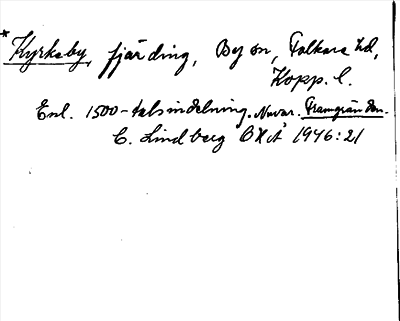 *Kyrkeby, fjärding, By sn, Folkare hd,
Kopp. l.
Enl. 1500-talsindelning. Nuvar. Framgränden.
C. Lindberg BHÅ 1946:21